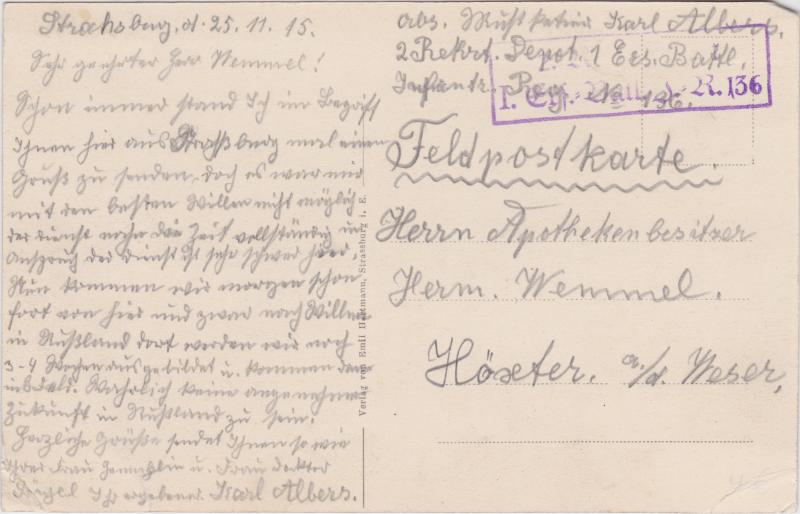 Straßburg, d. 25. 11. 15.
Sehr geehrter Herr Wemmel!
Schon immer stand Ich im Begriff
Ihnen hier aus Straßburg mal einen
Gruß zu senden, doch es war mir
mit den besten Willen nicht möglich
der Dienst nahm die Zeit vollständig in
Anspruch der Dienst ist sehr schwer hier.
Nun kommen wir morgen schon
fort von hier und zwar nach
in Rußland dort werden wir noch
3-4 Wochen ausgebildet u. kommen dann
Wahrlich keine angenehme
Zukunft in Rußland zu sein.
Herzliche Grüße sendet Ihnen so wie
Ihrer Frau Gemahlin u. Frau Doktor
Ihr ergebener Karl Albers.
Verlag von Emil Hartmann, Strassburg i. E.
abs. Musketier Karl Albers.
2 Rekrt. Depot. 1 Ers. Battl.
Infantr. Reg. No 136.
I. Ers.-Batl. J.-R. 136
Feldpostkarte.
Herrn Apothekenbesitzer
Herm. Wemmel.
Höxter. a./d. Weser,